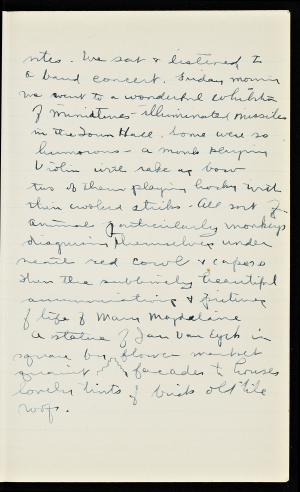 sites. We sat & listened to
a band concert. Friday morning
we went to a wonderful exhibition
of miniatures - illuminated missiles
in the Town Hall. Some were so
humorous - a monk playing
violin with rake as bow
two of them playing hockey with
their crooked sticks - All sort of
animals particularly monkeys
disguising themselves under
neath red cowl &
Then the sublimely beautiful
annunciations & pictures
of life of Mary Magdalaine
A statue of Jan Van Eyck in
square by flower market
quaint facades to houses
lovely tints of brick old tile
roofs.